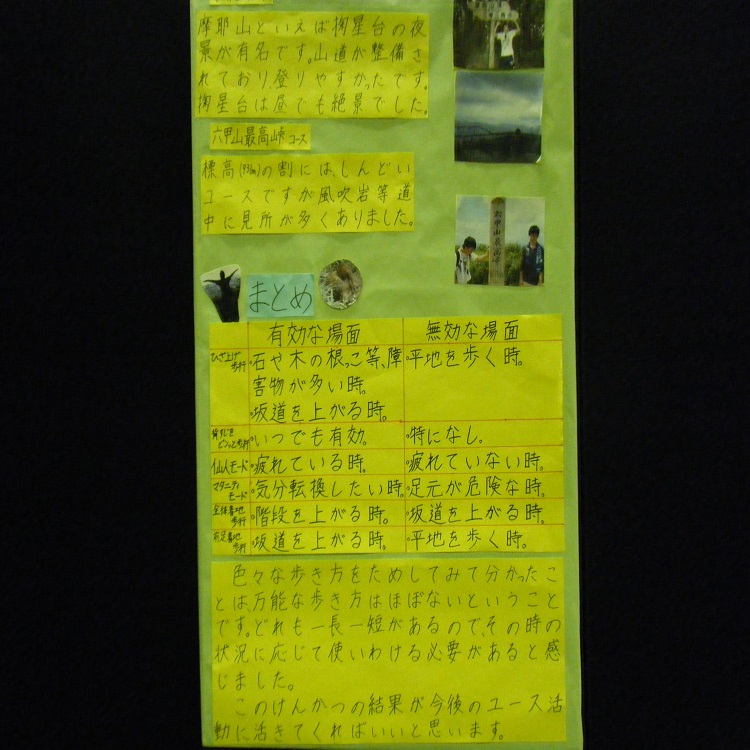 摩耶山といえば掬星台の夜
景が有名です。山道が整備さ
れており、登りやすかったです。
掬星台は昼でも絶景でした。
六甲山最高峰コース
標高(931m)の割には、しんどい
コースですが風吹岩等道
中に見所が多くありました。
六甲山最高峰
まとめ
有効な場面 無効な場面
ひざ上げ歩行 ・石や木の根っこ等、障 ・平地を歩く時。
害物が多い時。
・坂道を上がる時。
背すじをピンと歩行 ・いつでも有効。 ・特になし。
仙人モード ・疲れている時。 ・疲れていない時。
マタニティモード ・気分転換したい時。 ・足元が危険な時。
全体着地歩行 ・階段を上がる時。 ・坂道を上がる時。
前足着地歩行 ・坂道を上がる時。 ・平地を歩く時。
色々な歩き方をためしてみて分かったこ
とは、万能な歩き方はほぼないということ
です。どれも一長一短があるので、その時の
状況に応じて使いわける必要があると感
じました。
このけんかつの結果が今後のユース活
動に活きてくればいいと思います。